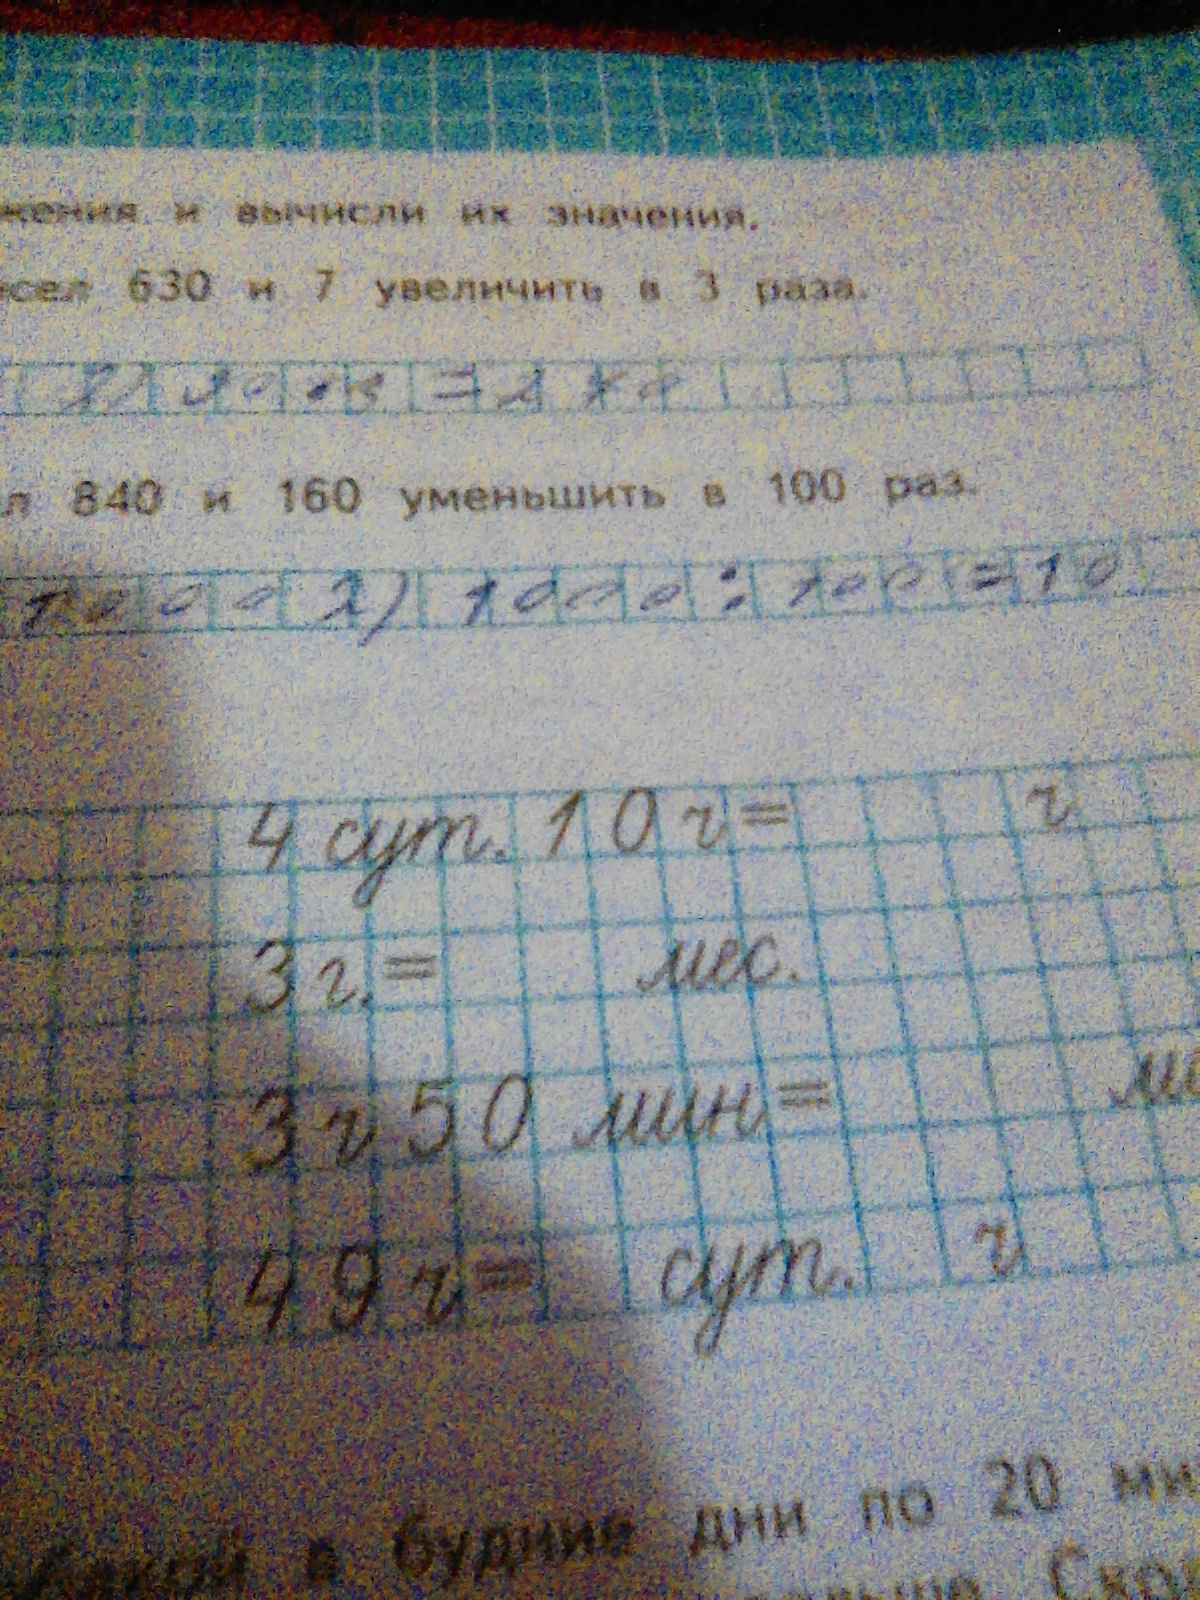 жения и вычисли их значения.
630 и 7 увеличить в 3 раза.
840 и 160 уменьшить в 100 раз.
1000 2) 1000 : 100 = 10
4 сут. 10 ч = ч
3 г. = мес.
3 ч 50 мин =
49 ч = сут. ч
в будние дни по 20